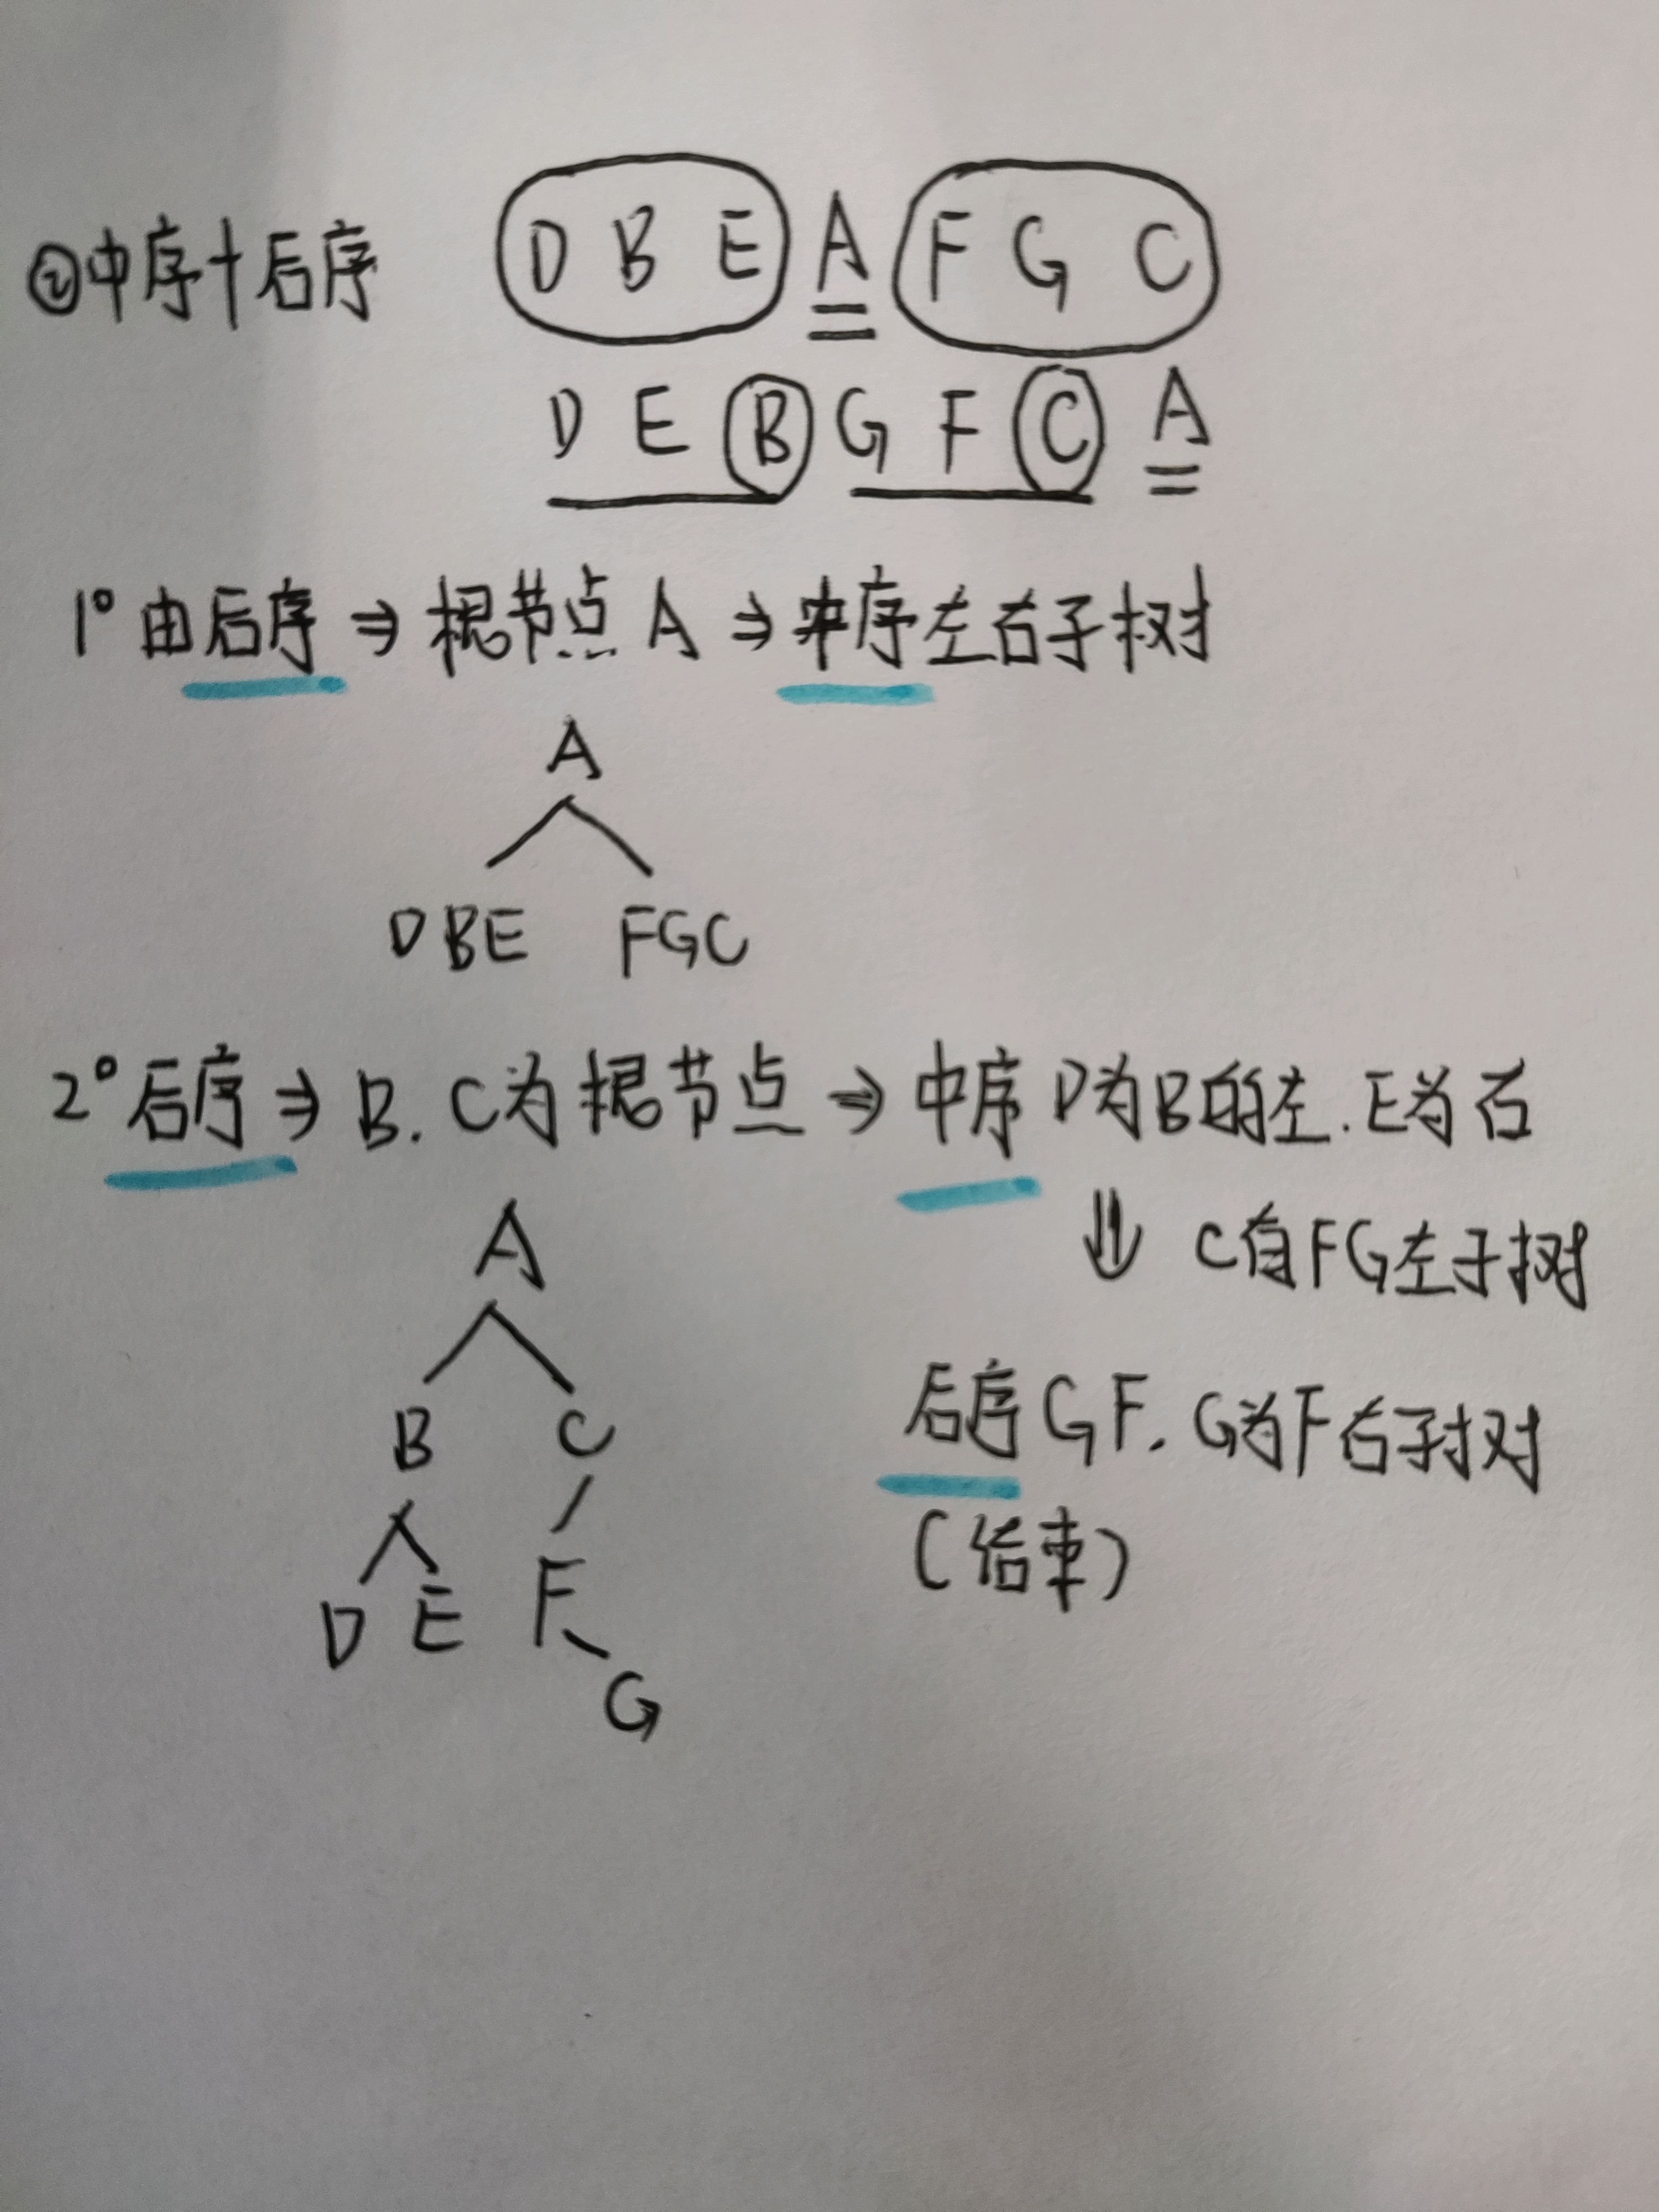 ②中序+后序 D B E A F G C
D E B G F C A
1° 由后序⇒根节点 A⇒中序左右子树
A
DBE FGC
2° 后序⇒B.C为根节点⇒中序 D为B的左.E为右
⇓ C有FG左子树
后序GF.G为F右子树
(结束)
A
B C
D E F
G